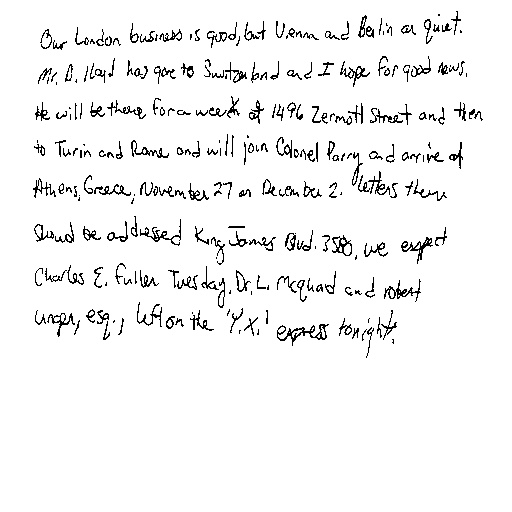 Our London business is good, but Vienna and Berlin are quiet.
Mr. D. Lloyd has gone to Switzerland and I hope for good news.
He will be there for a week at 1496 Zermott Street and then
to Turin and Rome and will join Colonel Parry and arrive at
Athens, Greece, November 27 or December 2. Letters there
should be addressed King James Blvd. 3580, we expect
Charles E. Fuller Tuesday. Dr. L. McQuaid and robert
unger, esq., left on the 'Y.X.' express tonight.